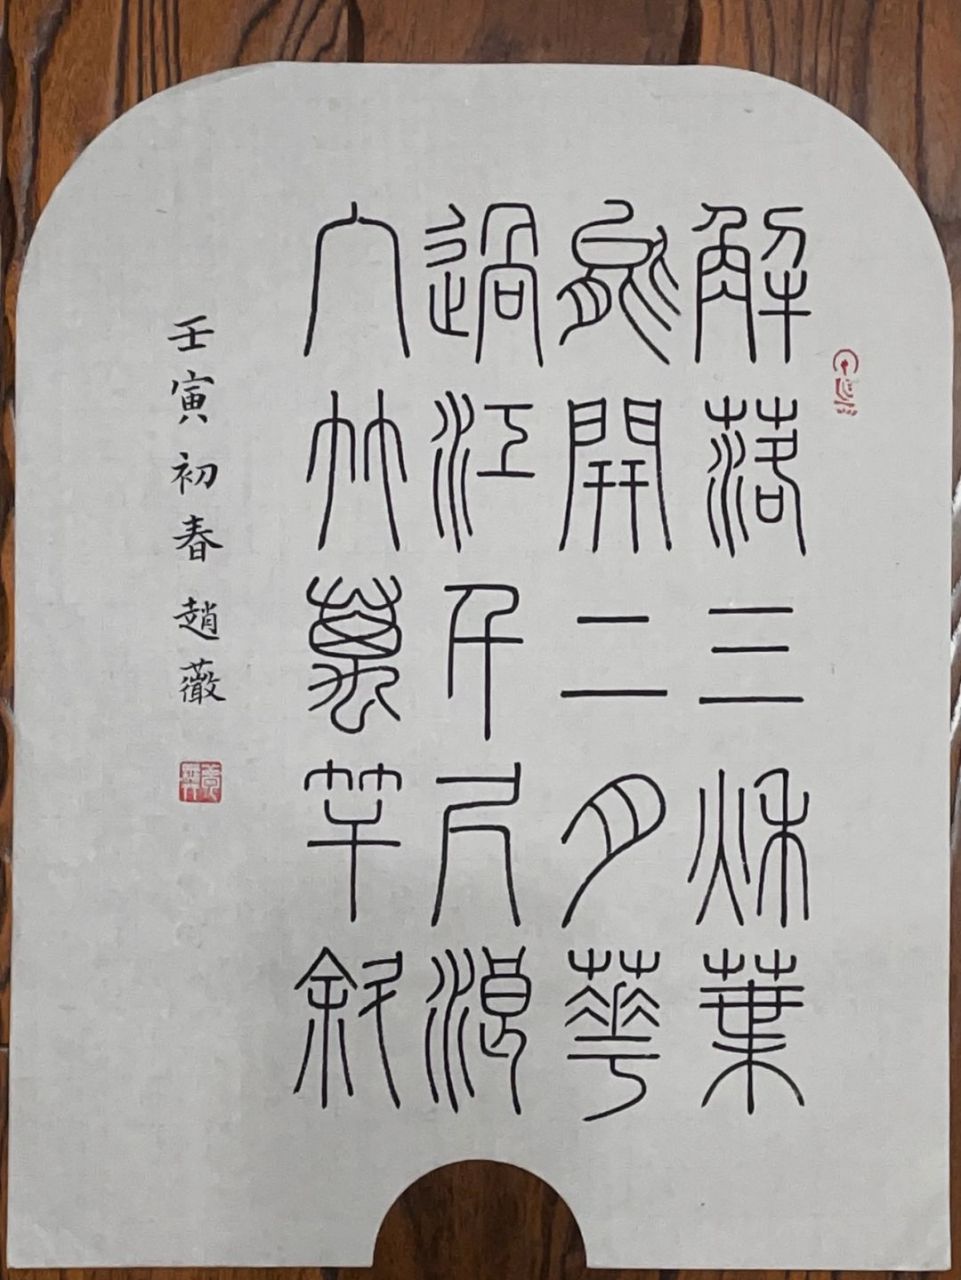 解落三秋葉
能開二月華
過江千尺浪
入竹萬竿斜
壬寅初春趙薇